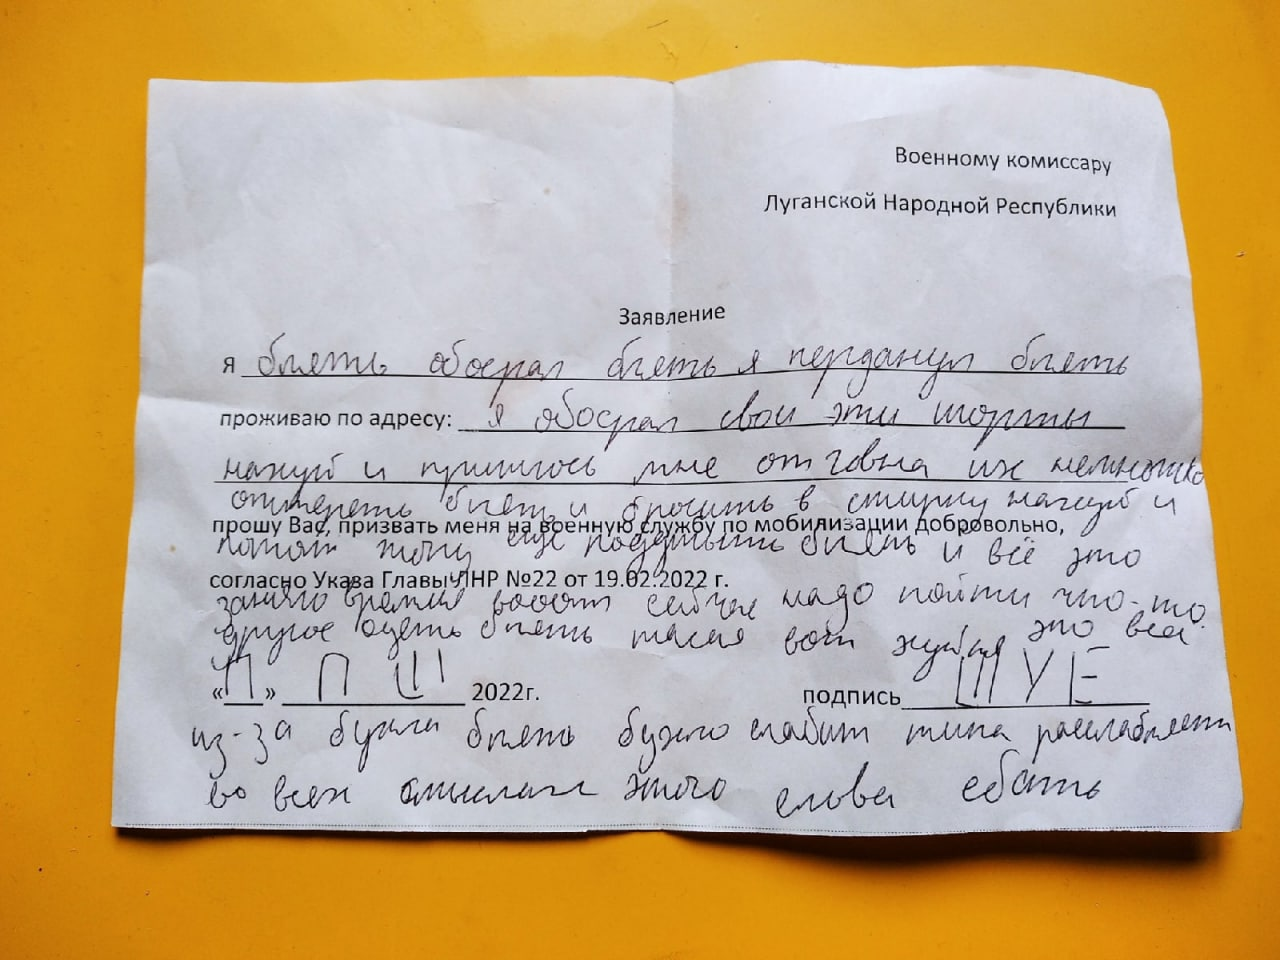 Военному комиссару
Луганской Народной Республики
Заявление
я блять обосрал блять я перданул блять
проживаю по адресу: я обосрал свои эти шорты
нахуй и пришлось мне от говна их немножко
оттереть блять и бросить в стирку нахуй и
прошу Вас, призвать меня на военную службу по мобилизации добровольно,
потом жопу ещё подмыть блять и всё это
согласно Указа Главы ЛНР №22 от 19.02.2022 г.
заняло время вооот сейчас надо пойти что-то
другое одеть блять такая вот хуйня это всё
«П» П Ш 2022г. подпись ШУЕ
из-за бухла блять бухло слабит типа расслабляет
во всех смыслах этого слова ебать